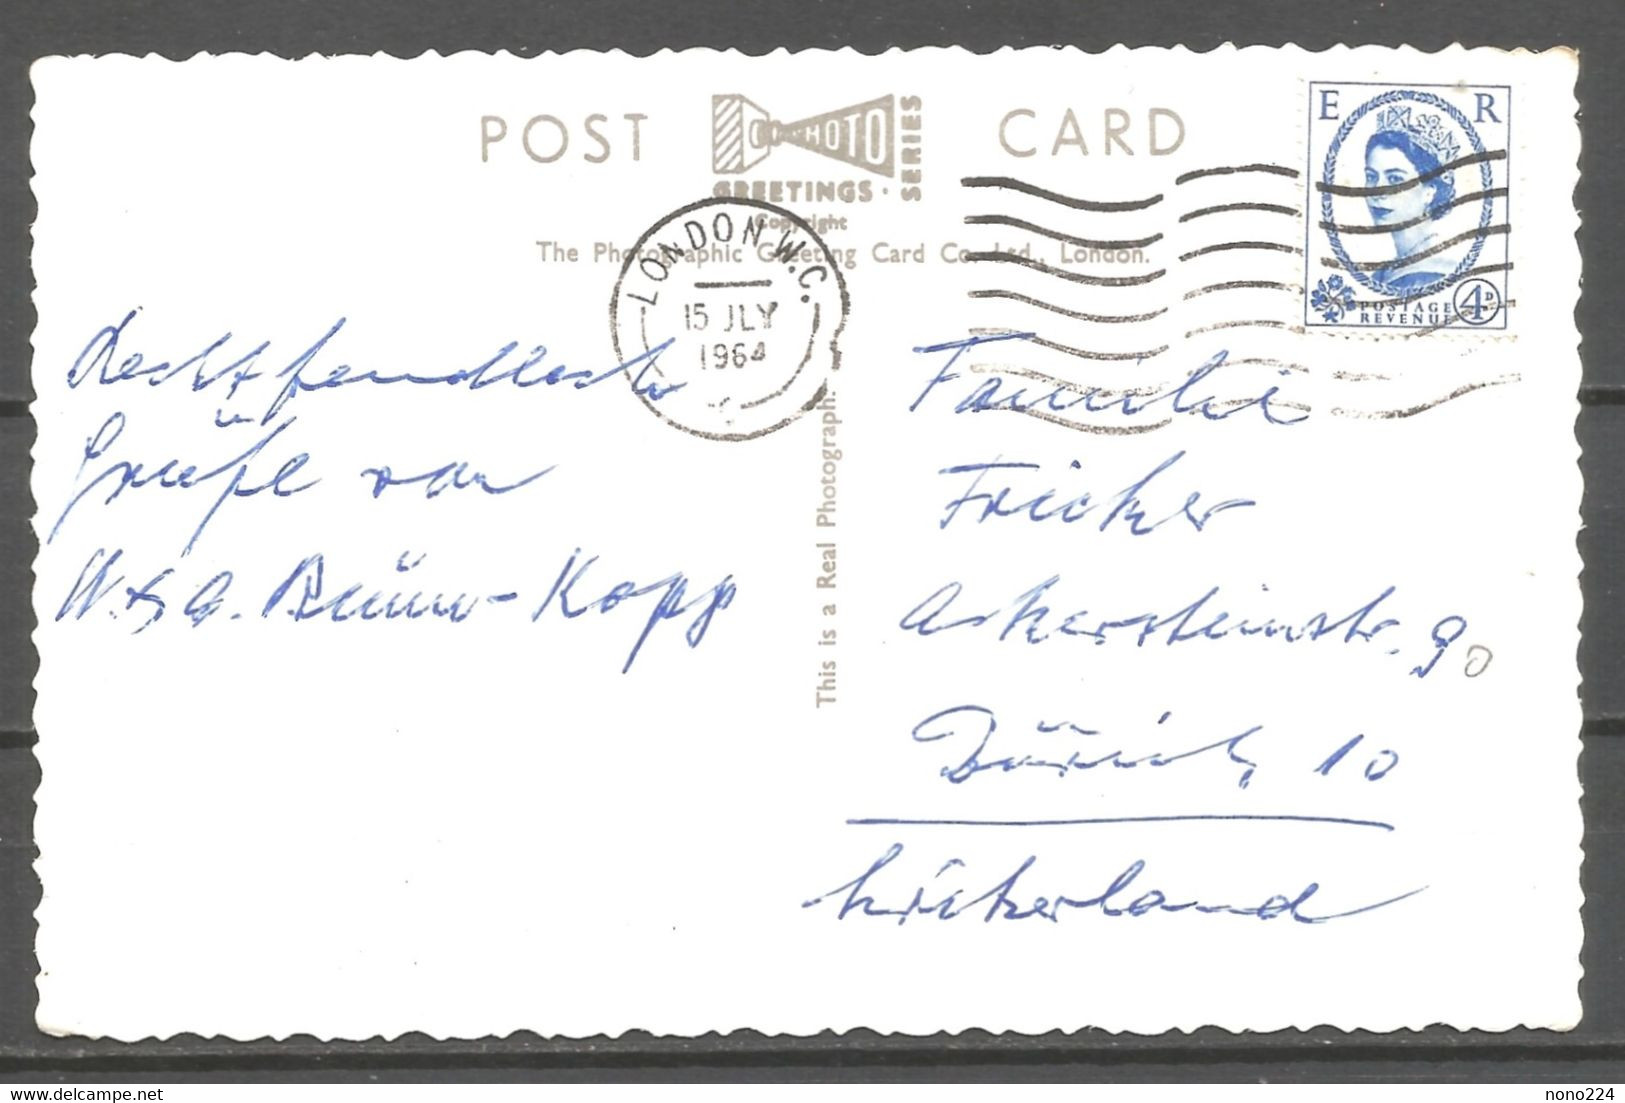 POST CARD
PHOTO
GREETINGS · SERIES
Copyright
The Photographic Greeting Card Co. Ltd., London.
E R
POSTAGE
REVENUE 4D
LONDON.W.C.
15 JLY
1964
This is a Real Photograph.
Recht freundlich
Grüße von
W. & G. -Kopp
Familie
Fricker
Ackersteinstr. 90
Zürich 10
nono224